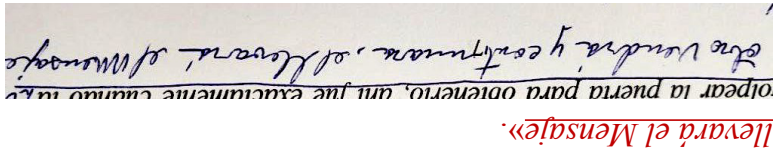 llevará el Mensaje».
olpear la puerta para obtenerlo, ahí fue exactamente cuando
otro vendrá y continuara, el llevará el Mensaje